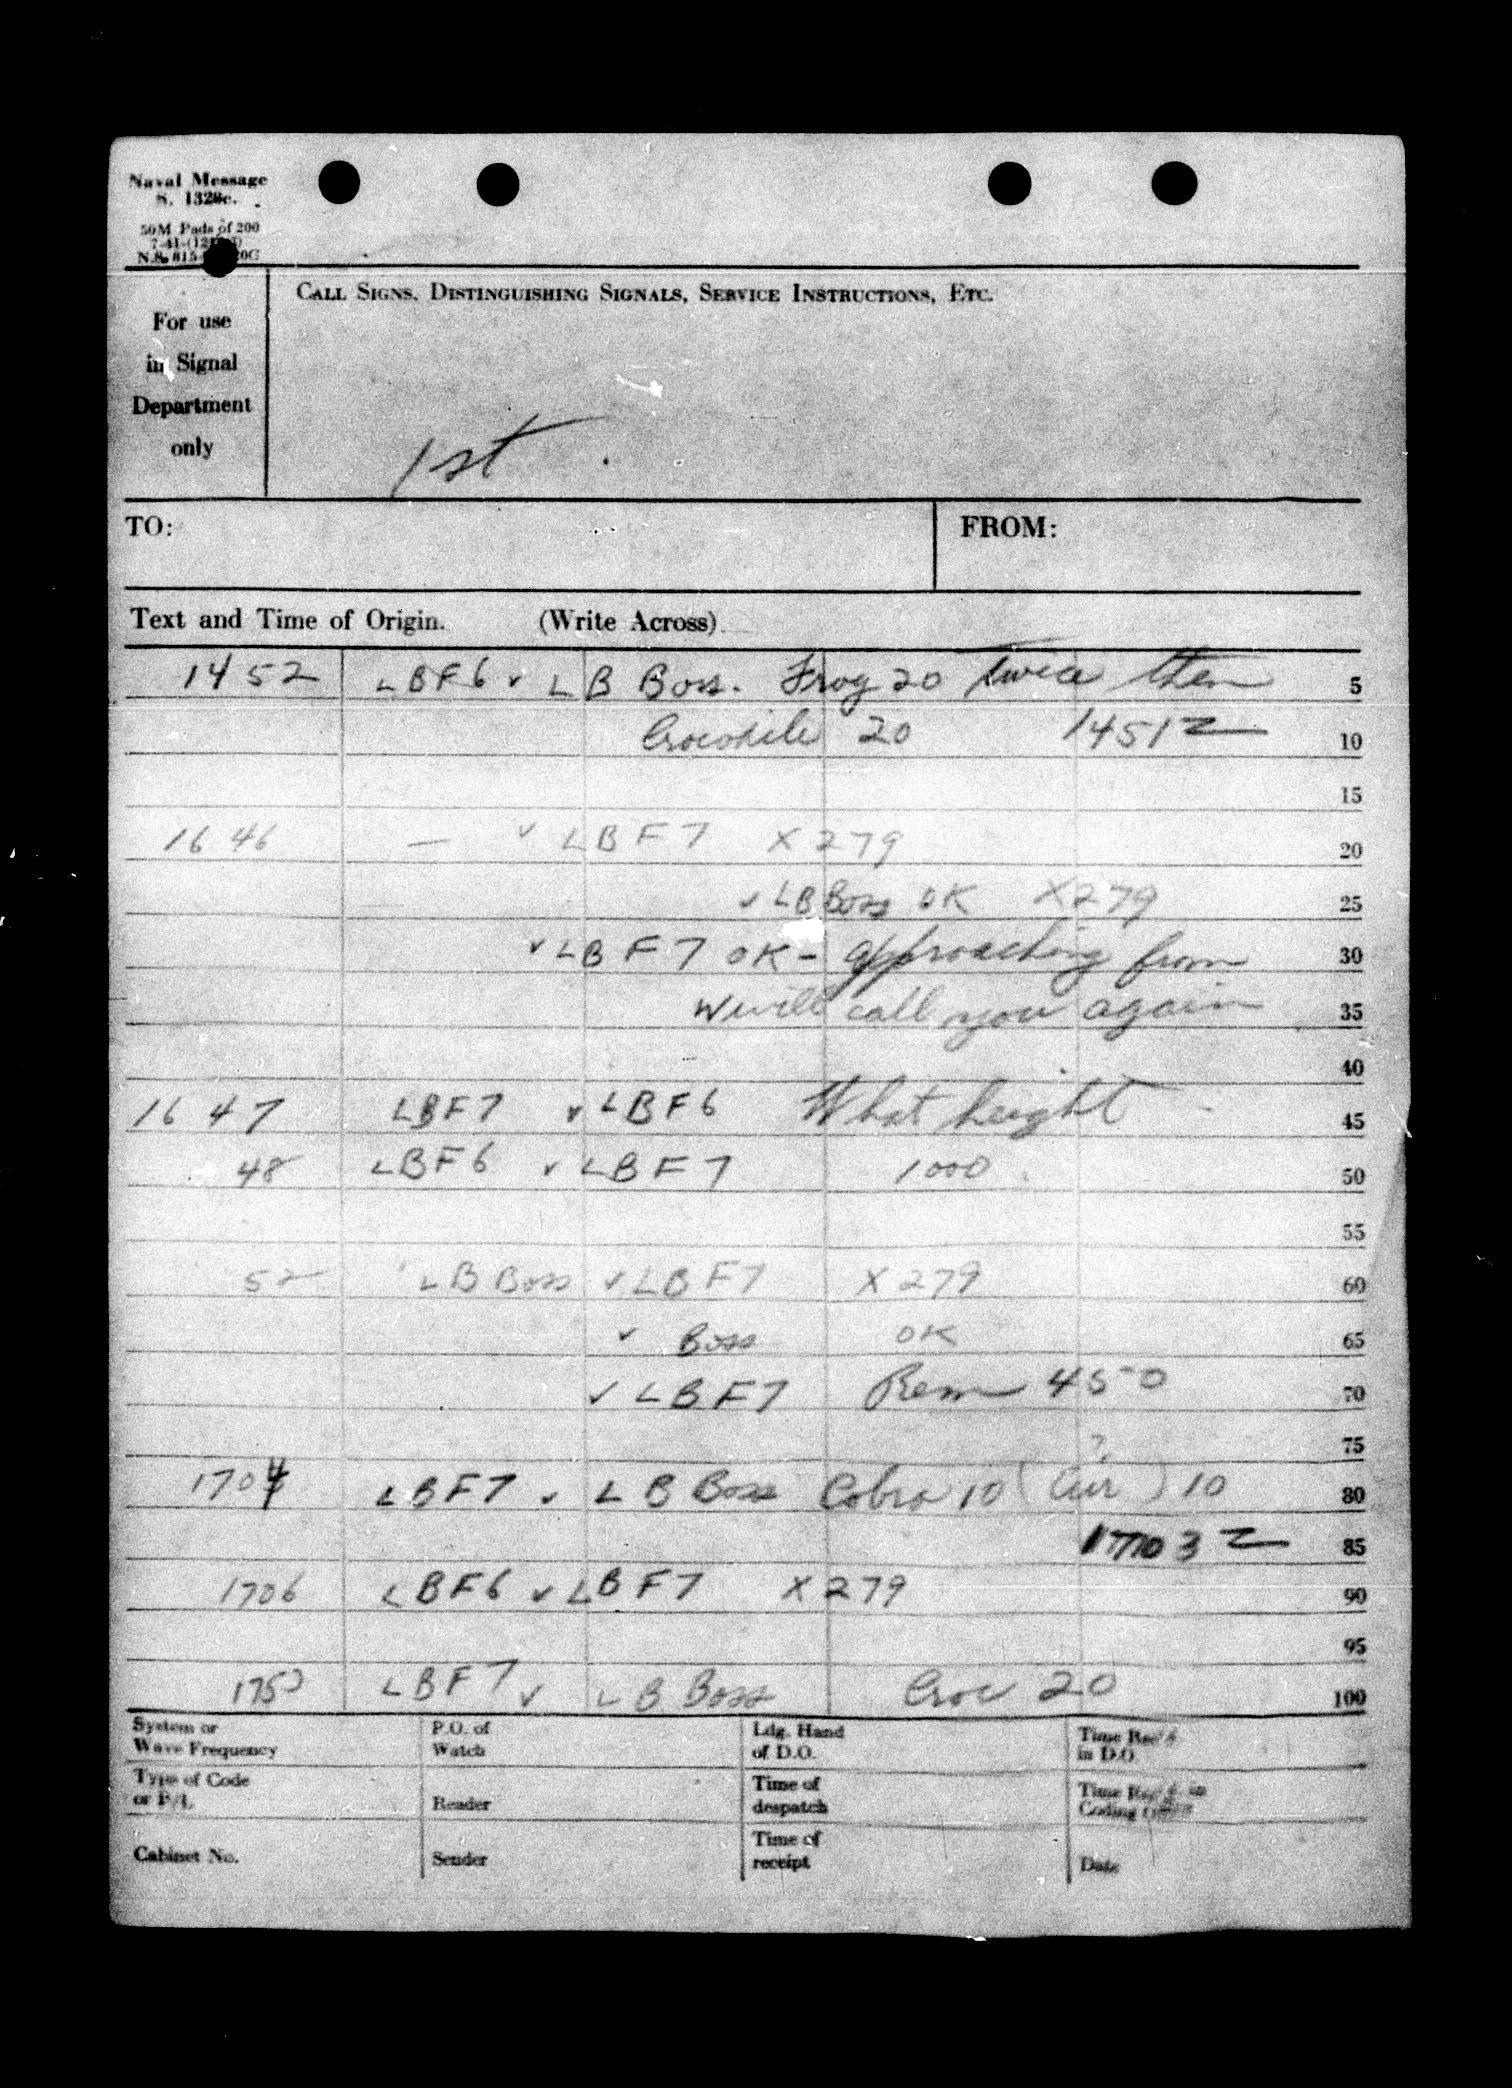 Naval Message
S. 1328c.
50M Pads of 200
N.S. 815-
CALL SIGNS, DISTINGUISHING SIGNALS, SERVICE INSTRUCTIONS, ETC.
For use
in Signal
Department
only
1st
TO:
FROM:
Text and Time of Origin. (Write Across)
1452 LBF6 v LB Boss. Frog 20 twice then 5
Crocodile 20 1451Z 10
15
1646 — v LBF7 X279 20
v LB Boss OK X279 25
v LBF7 OK - approaching from 30
W will call you again 35
40
1647 LBF7 v LBF6 What height 45
48 LBF6 v LBF7 1000 50
55
52 LB Boss v LBF7 X279 60
v Boss OK 65
v LBF7 Rem 450 70
? 75
1704 LBF7 v LB Boss Cobra 10 (Air) 10 80
1703Z 85
1706 LBF6 v LBF7 X279 90
95
1753 LBF7 v LB Boss Croc 20 100
System or
Wave Frequency
P.O. of
Watch
Ldg. Hand
of D.O.
Time Rec'd
in D.O.
Type of Code
or P/L
Reader
Time of
despatch
Time Rec'd in
Coding Office
Cabinet No.
Sender
Time of
receipt
Date